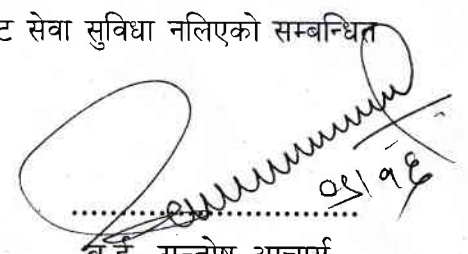 ट सेवा सुविधा नलिएको सम्बन्धित
०९।१६
....................................
ब.ई. सन्तोष आचार्य